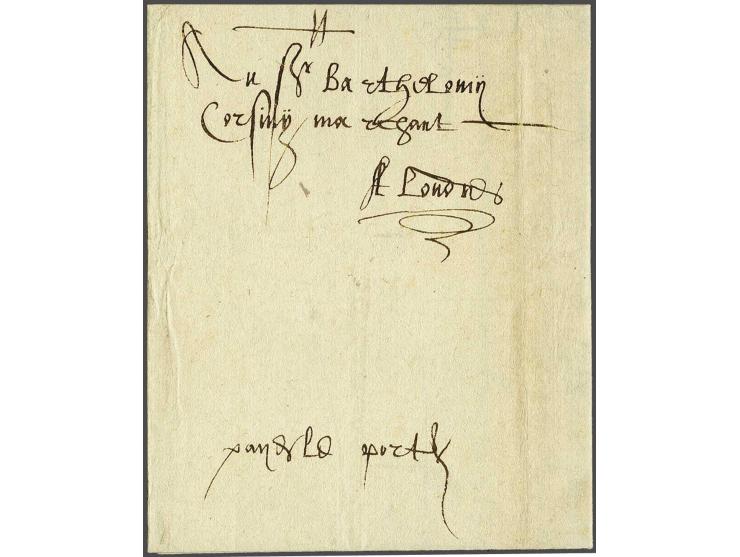 Au Sr Barthelomij
Corsinij marchant
A Londres
payes le porte